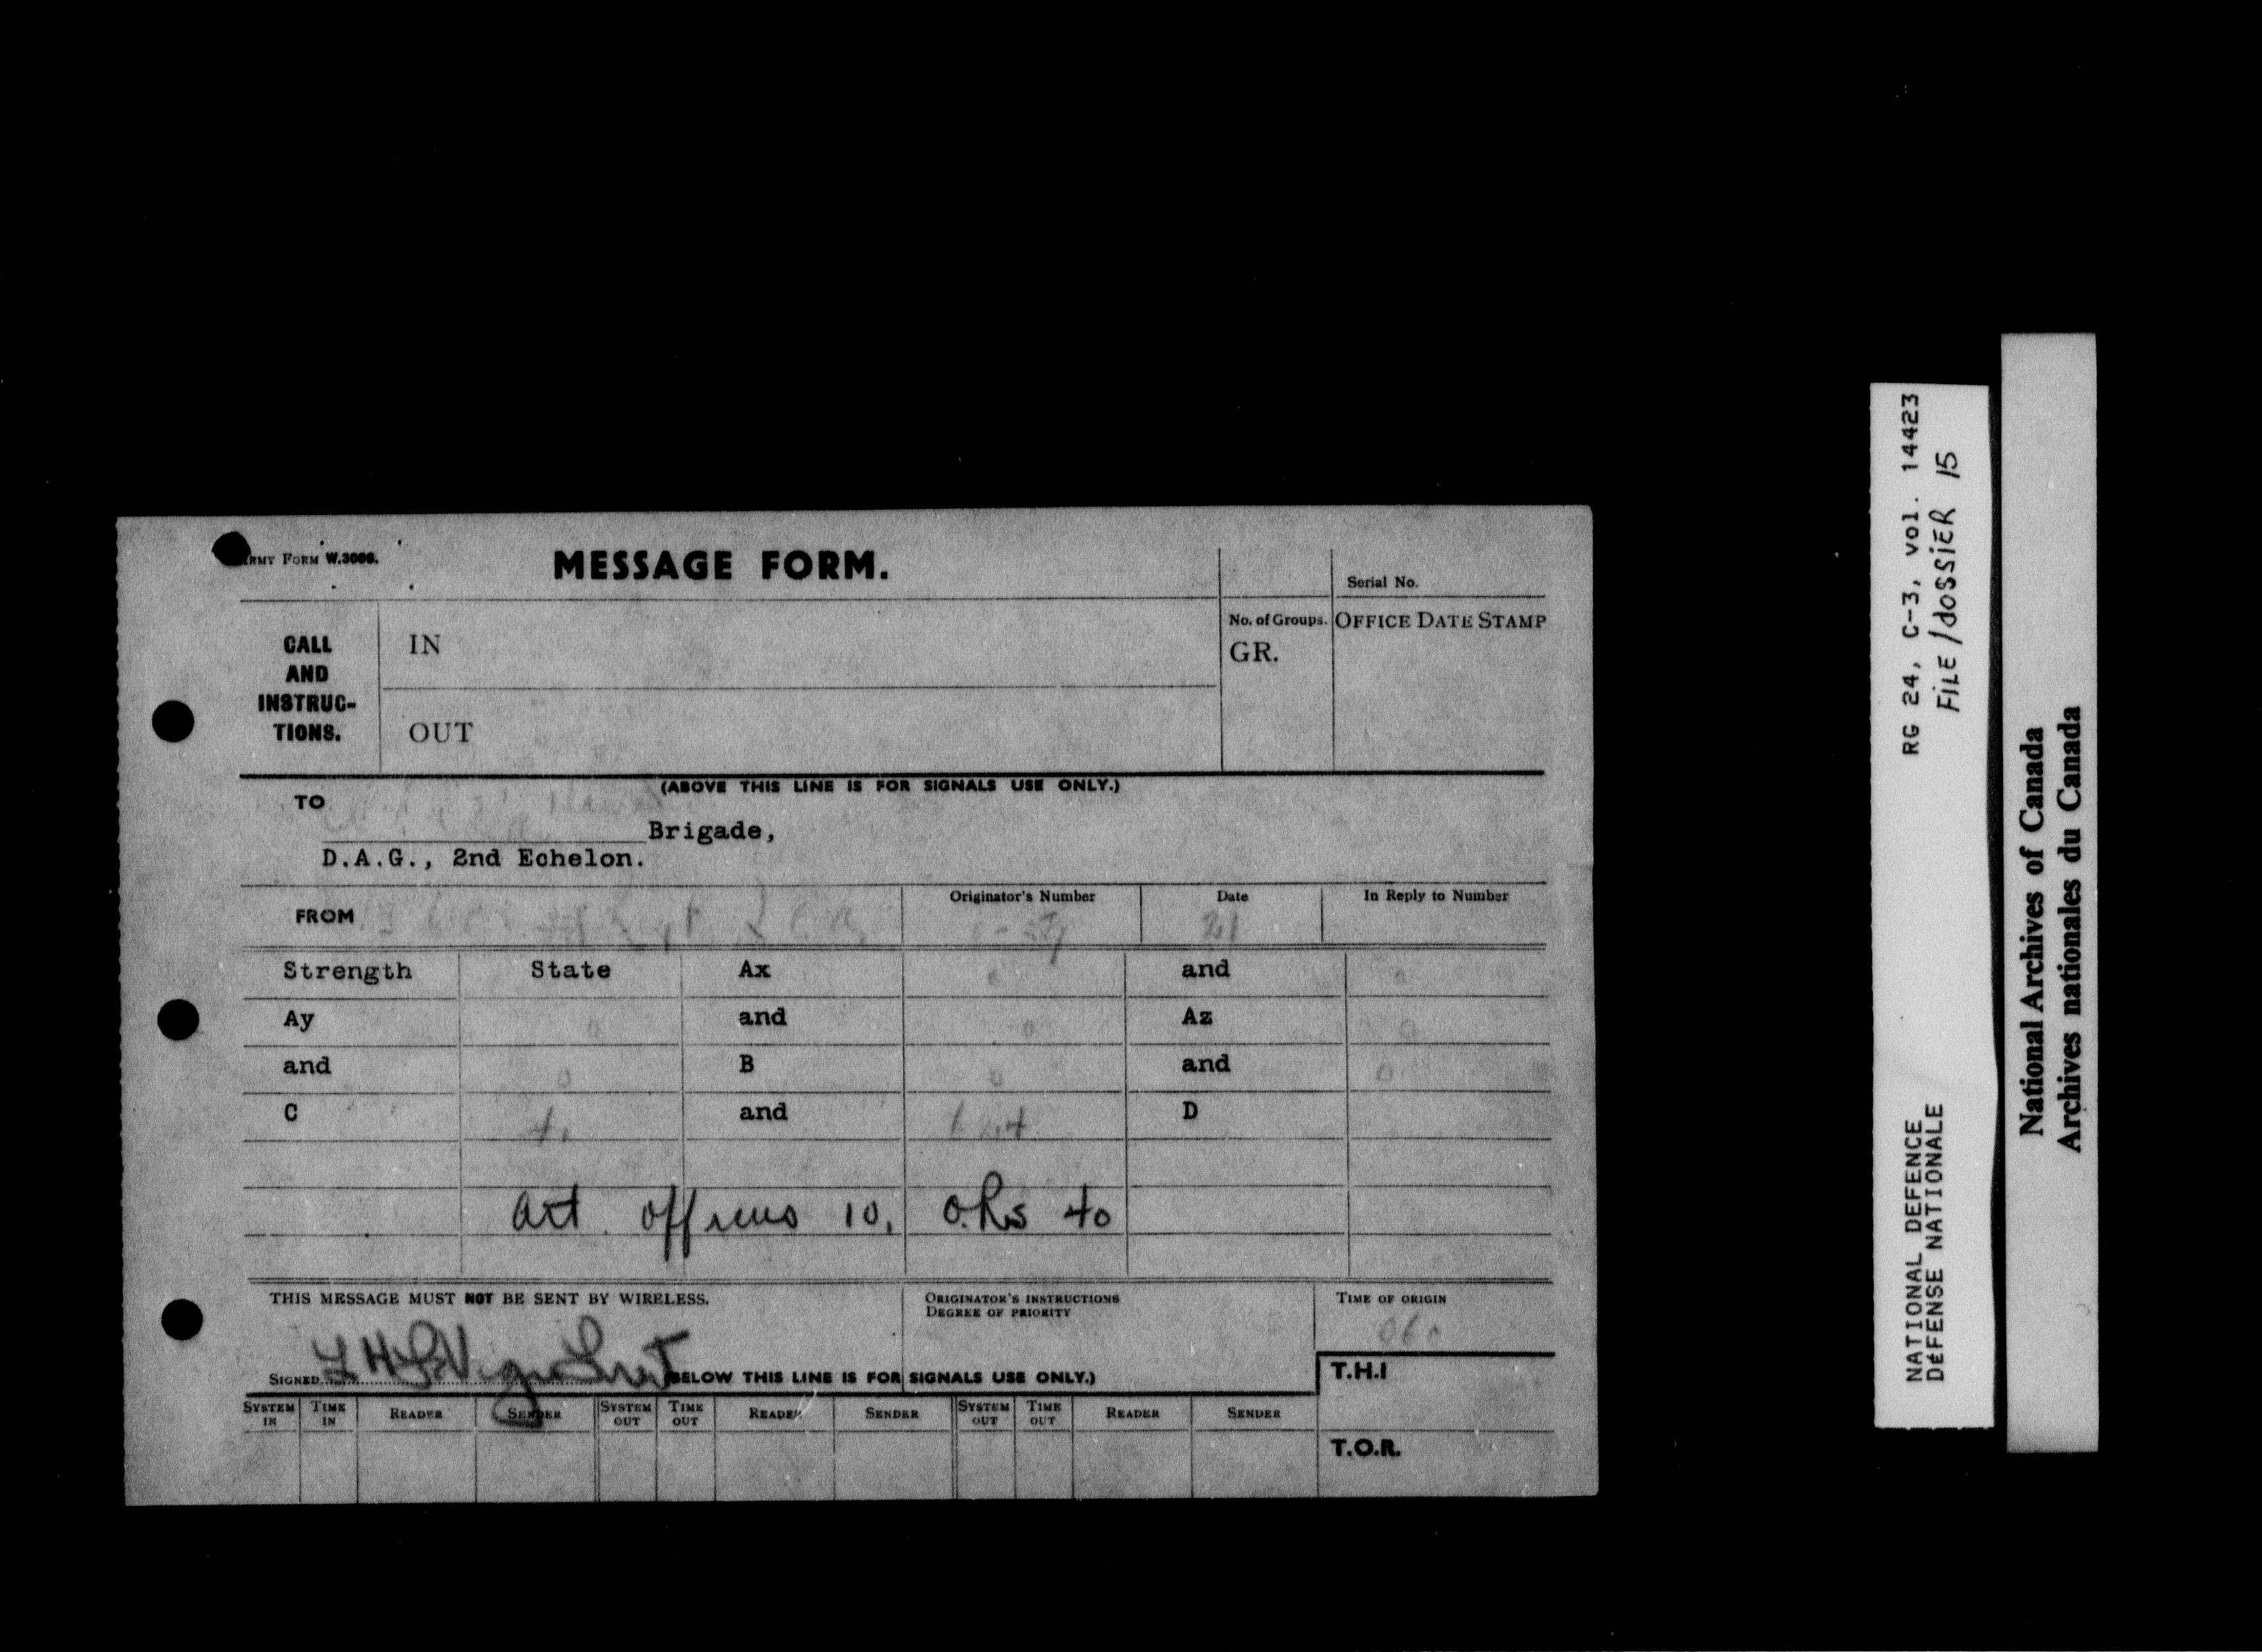 ARMY FORM W.3006.
MESSAGE FORM.
Serial No.
CALL AND INSTRUC-TIONS.
IN
OUT
No. of Groups.
GR.
OFFICE DATE STAMP
(ABOVE THIS LINE IS FOR SIGNALS USE ONLY.)
TO
Brigade,
D.A.G., 2nd Echelon.
FROM
Originator's Number
Date
21
In Reply to Number
Strength State Ax 0 and 0
Ay 0 and 0 Az 0
and 0 B 0 and 0
C 4. and D
Att. officers 10, O.Rs 40
THIS MESSAGE MUST NOT BE SENT BY WIRELESS.
ORIGINATOR'S INSTRUCTIONS
DEGREE OF PRIORITY
TIME OF ORIGIN
SIGNED
BELOW THIS LINE IS FOR SIGNALS USE ONLY.)
T.H.I
SYSTEM IN TIME IN READER SENDER SYSTEM OUT TIME OUT READER SENDER SYSTEM OUT TIME OUT READER SENDER
T.O.R.
RG 24, C-3, vol. 14423
FILE/dOSSiER 15
NATIONAL DEFENCE
DéFENSE NATIONALE
National Archives of Canada
Archives nationales du Canada